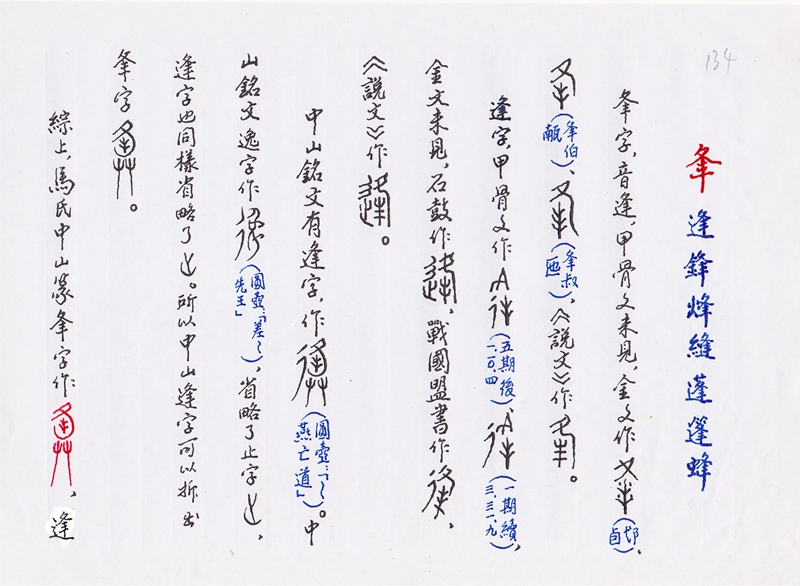 134
夆逢鋒烽縫蓬篷蜂
夆字，音逢，甲骨文未見，金文作（邞卣）、
（夆伯甗）、（夆叔匜）、《說文》作。
逢字，甲骨文作（五期後一.一〇.四）、（一期續三.三一.九），
金文未見，石鼓作，戰國盟書作，
《說文》作。
中山銘文有逢字，作（圓壺：「〜燕亡道」）。中
山銘文逸字作（圓壺：「差〜先王」），省略了止字，
逢字也同樣省略了。所以中山逢字可以拆出
夆字。
綜上，馬氏中山篆夆字作、逢